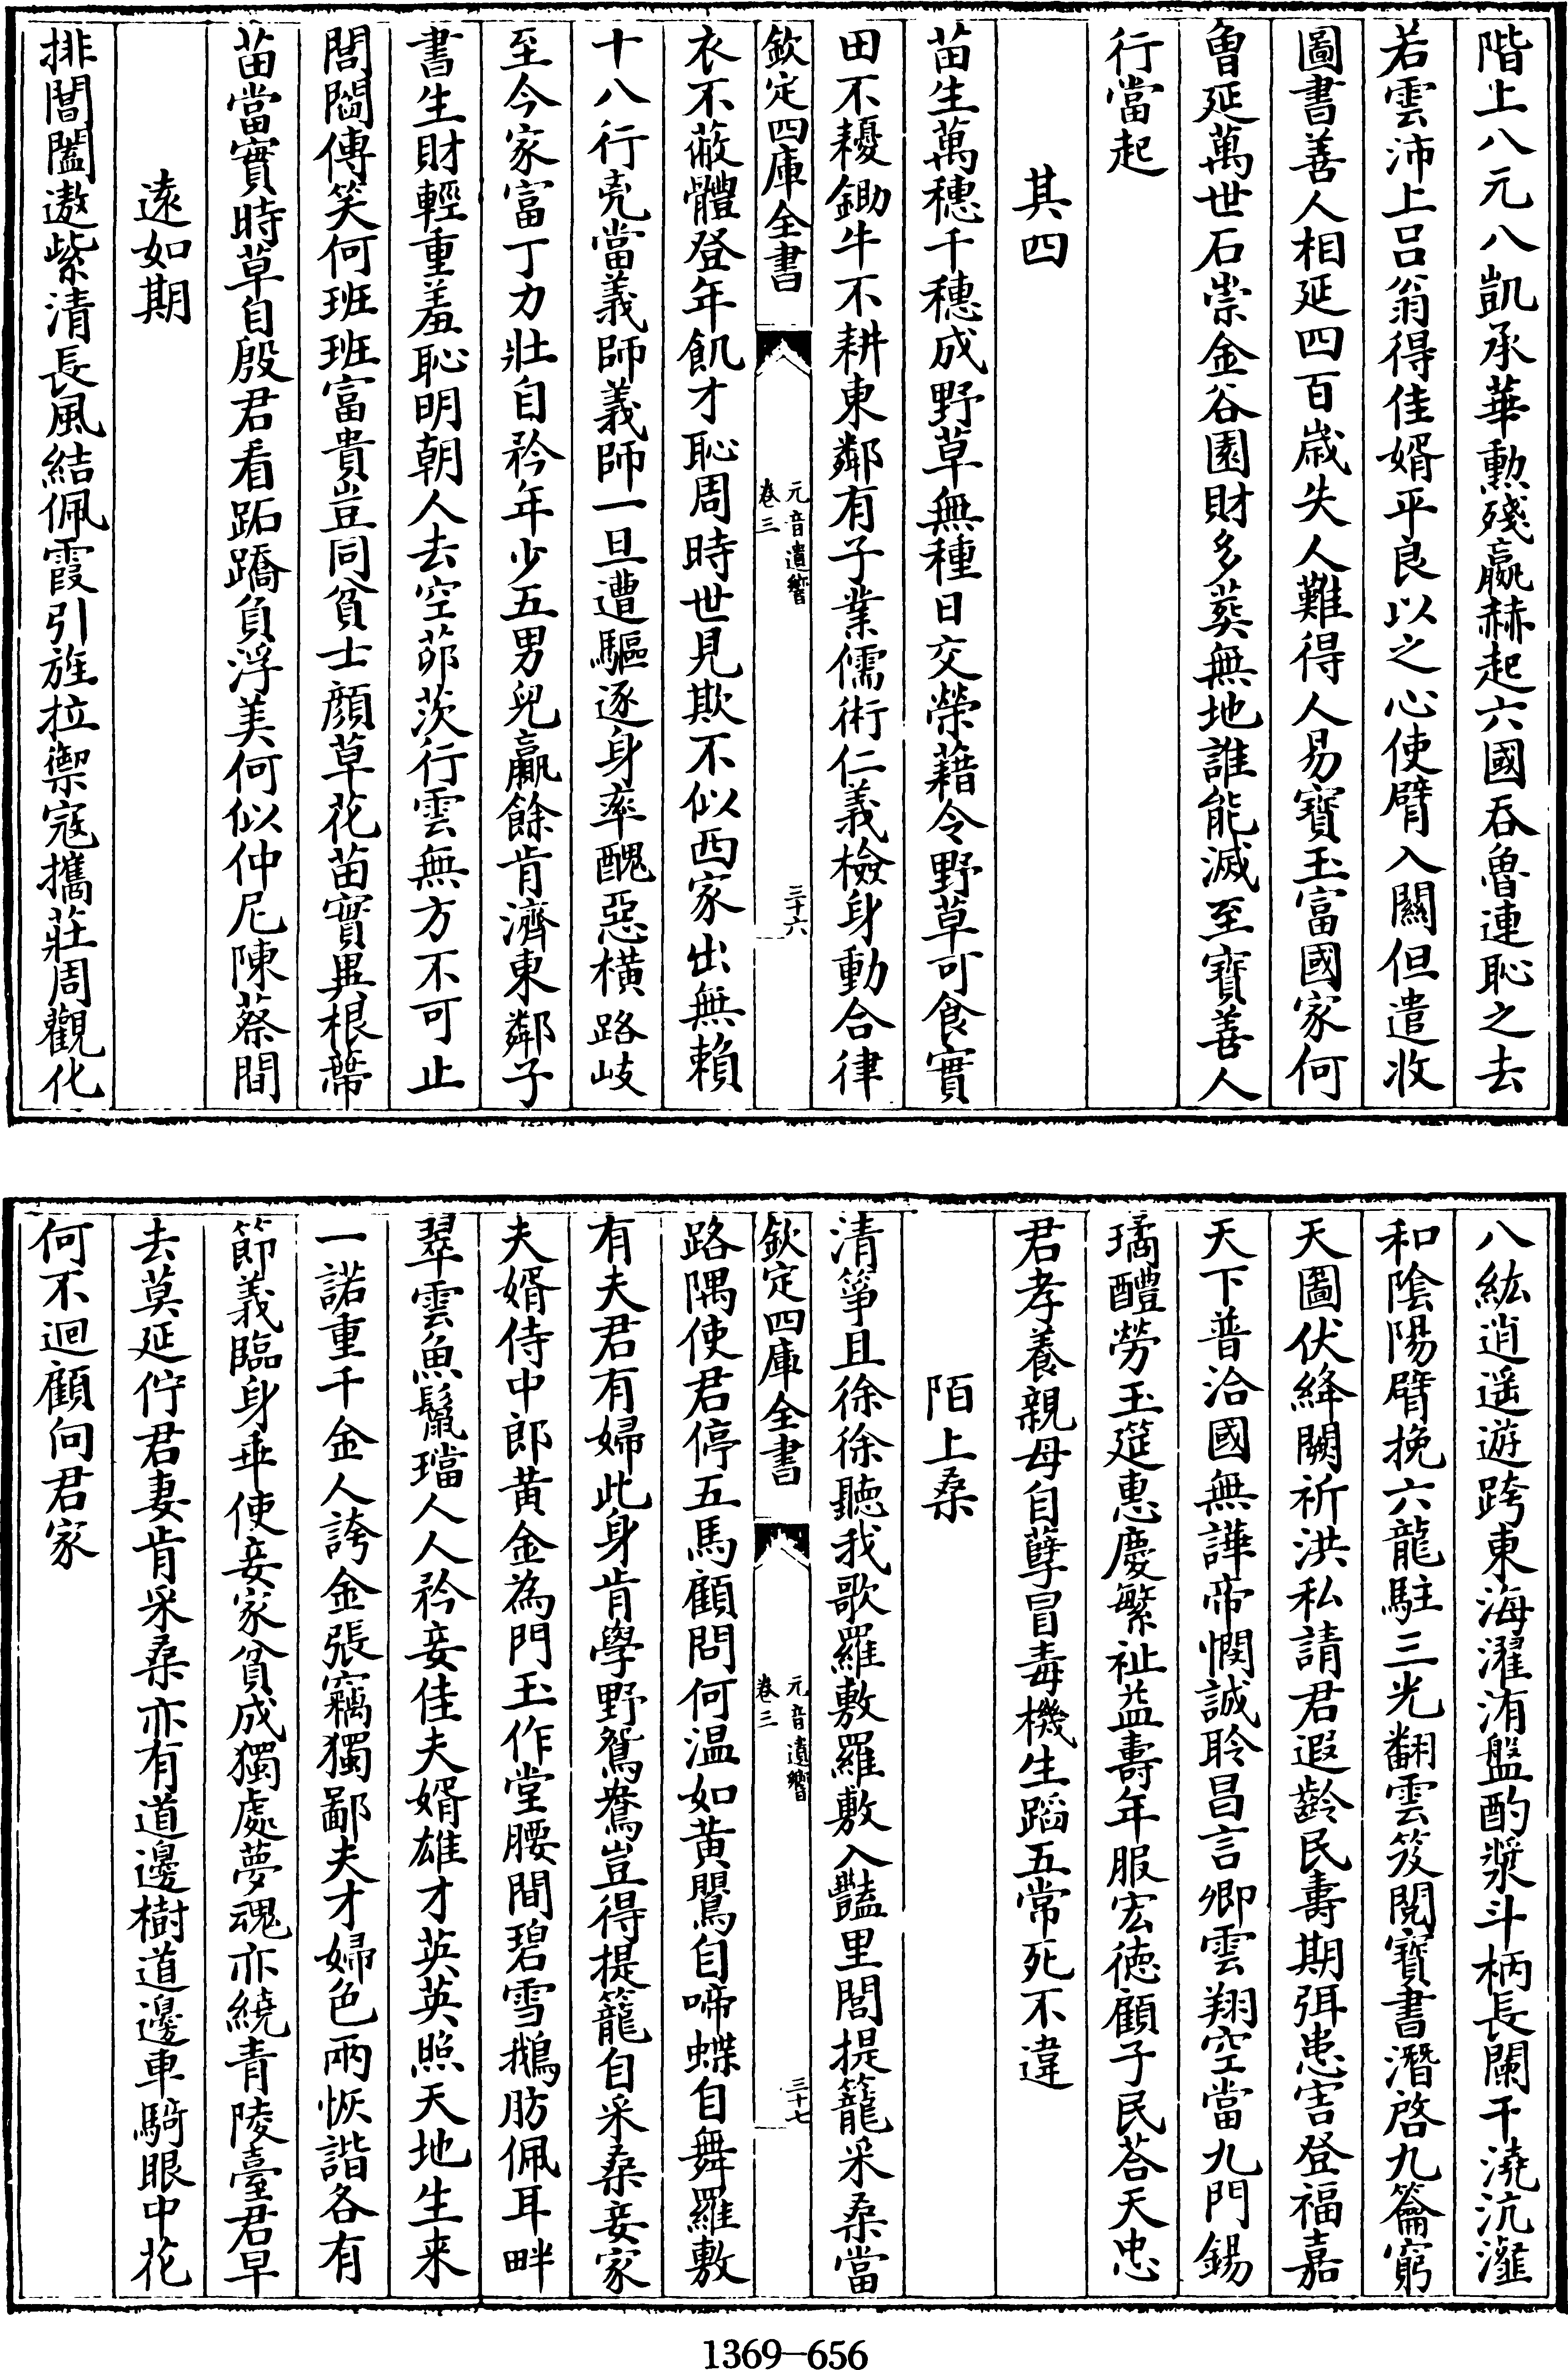 階上八元八凱承華勲殘嬴赫起六國吞魯連恥之去
若雲沛上吕翁得佳婿平良以之心使臂入關但遣收
圖書善人相延四百歲失人難得人易寳玉富國家何
曾延萬世石崇金谷園財多葬無地誰能滅至寳善人
行當起
其四
苗生萬穗千穗成野草無種日交榮藉令野草可食實
田不耰鋤牛不耕東鄰有子業儒術仁義檢身動合律
欽定四庫全書
元音遺響
卷三
三十六
衣不蔽體登年飢才恥周時世見欺不似西家出無賴
十八行兇當義師義師一旦遭驅逐身率醜惡橫路歧
至今家富丁力壯自矜年少五男兒贏餘肯濟東鄰子
書生財輕重羞恥明朝人去空茆茨行雲無方不可止
閭閻傳笑何班班富貴豈同貧士顔草花苗實異根蔕
苗當實時草自殷君看跖蹻負浮美何似仲尼陳蔡間
遠如期
排閶闔遨紫清長風結佩霞引旌拉禦寇攜莊周觀化
八紘逍遥遊跨東海濯洧盤酌漿斗柄長闌干澆沆瀣
和陰陽臂挽六龍駐三光翻雲笈閱寳書潛啓九籥窮
天圖伏絳闕祈洪私請君遐齡民壽期弭患害登福嘉
天下普洽國無譁帝憫誠聆昌言卿雲翔空當九門錫
璚醴勞玉筵惠慶繁祉益壽年服宏德顧子民荅天忠
君孝養親母自孽冒毒機生蹈五常死不違
陌上桑
清箏且徐徐聽我歌羅敷羅敷入豔里閭提籠采桑當
欽定四庫全書
元音遺響
卷三
三十七
路隅使君停五馬顧問何温如黄鸎自啼蝶自舞羅敷
有夫君有婦此身肯學野鴛鴦豈得提籠自采桑妾家
夫婿侍中郎黄金為門玉作堂腰間碧雪鵝肪佩耳畔
翠雲魚鬛璫人人矜妾佳夫婿雄才英英照天地生来
一諾重千金人誇金張竊獨鄙夫才婦色兩恢諧各有
節義臨身乖使妾家貧成獨處夢魂亦繞青陵臺君早
去莫延佇君妻肯采桑亦有道邊樹道邊車騎眼中花
何不迴顧向君家
1369-656